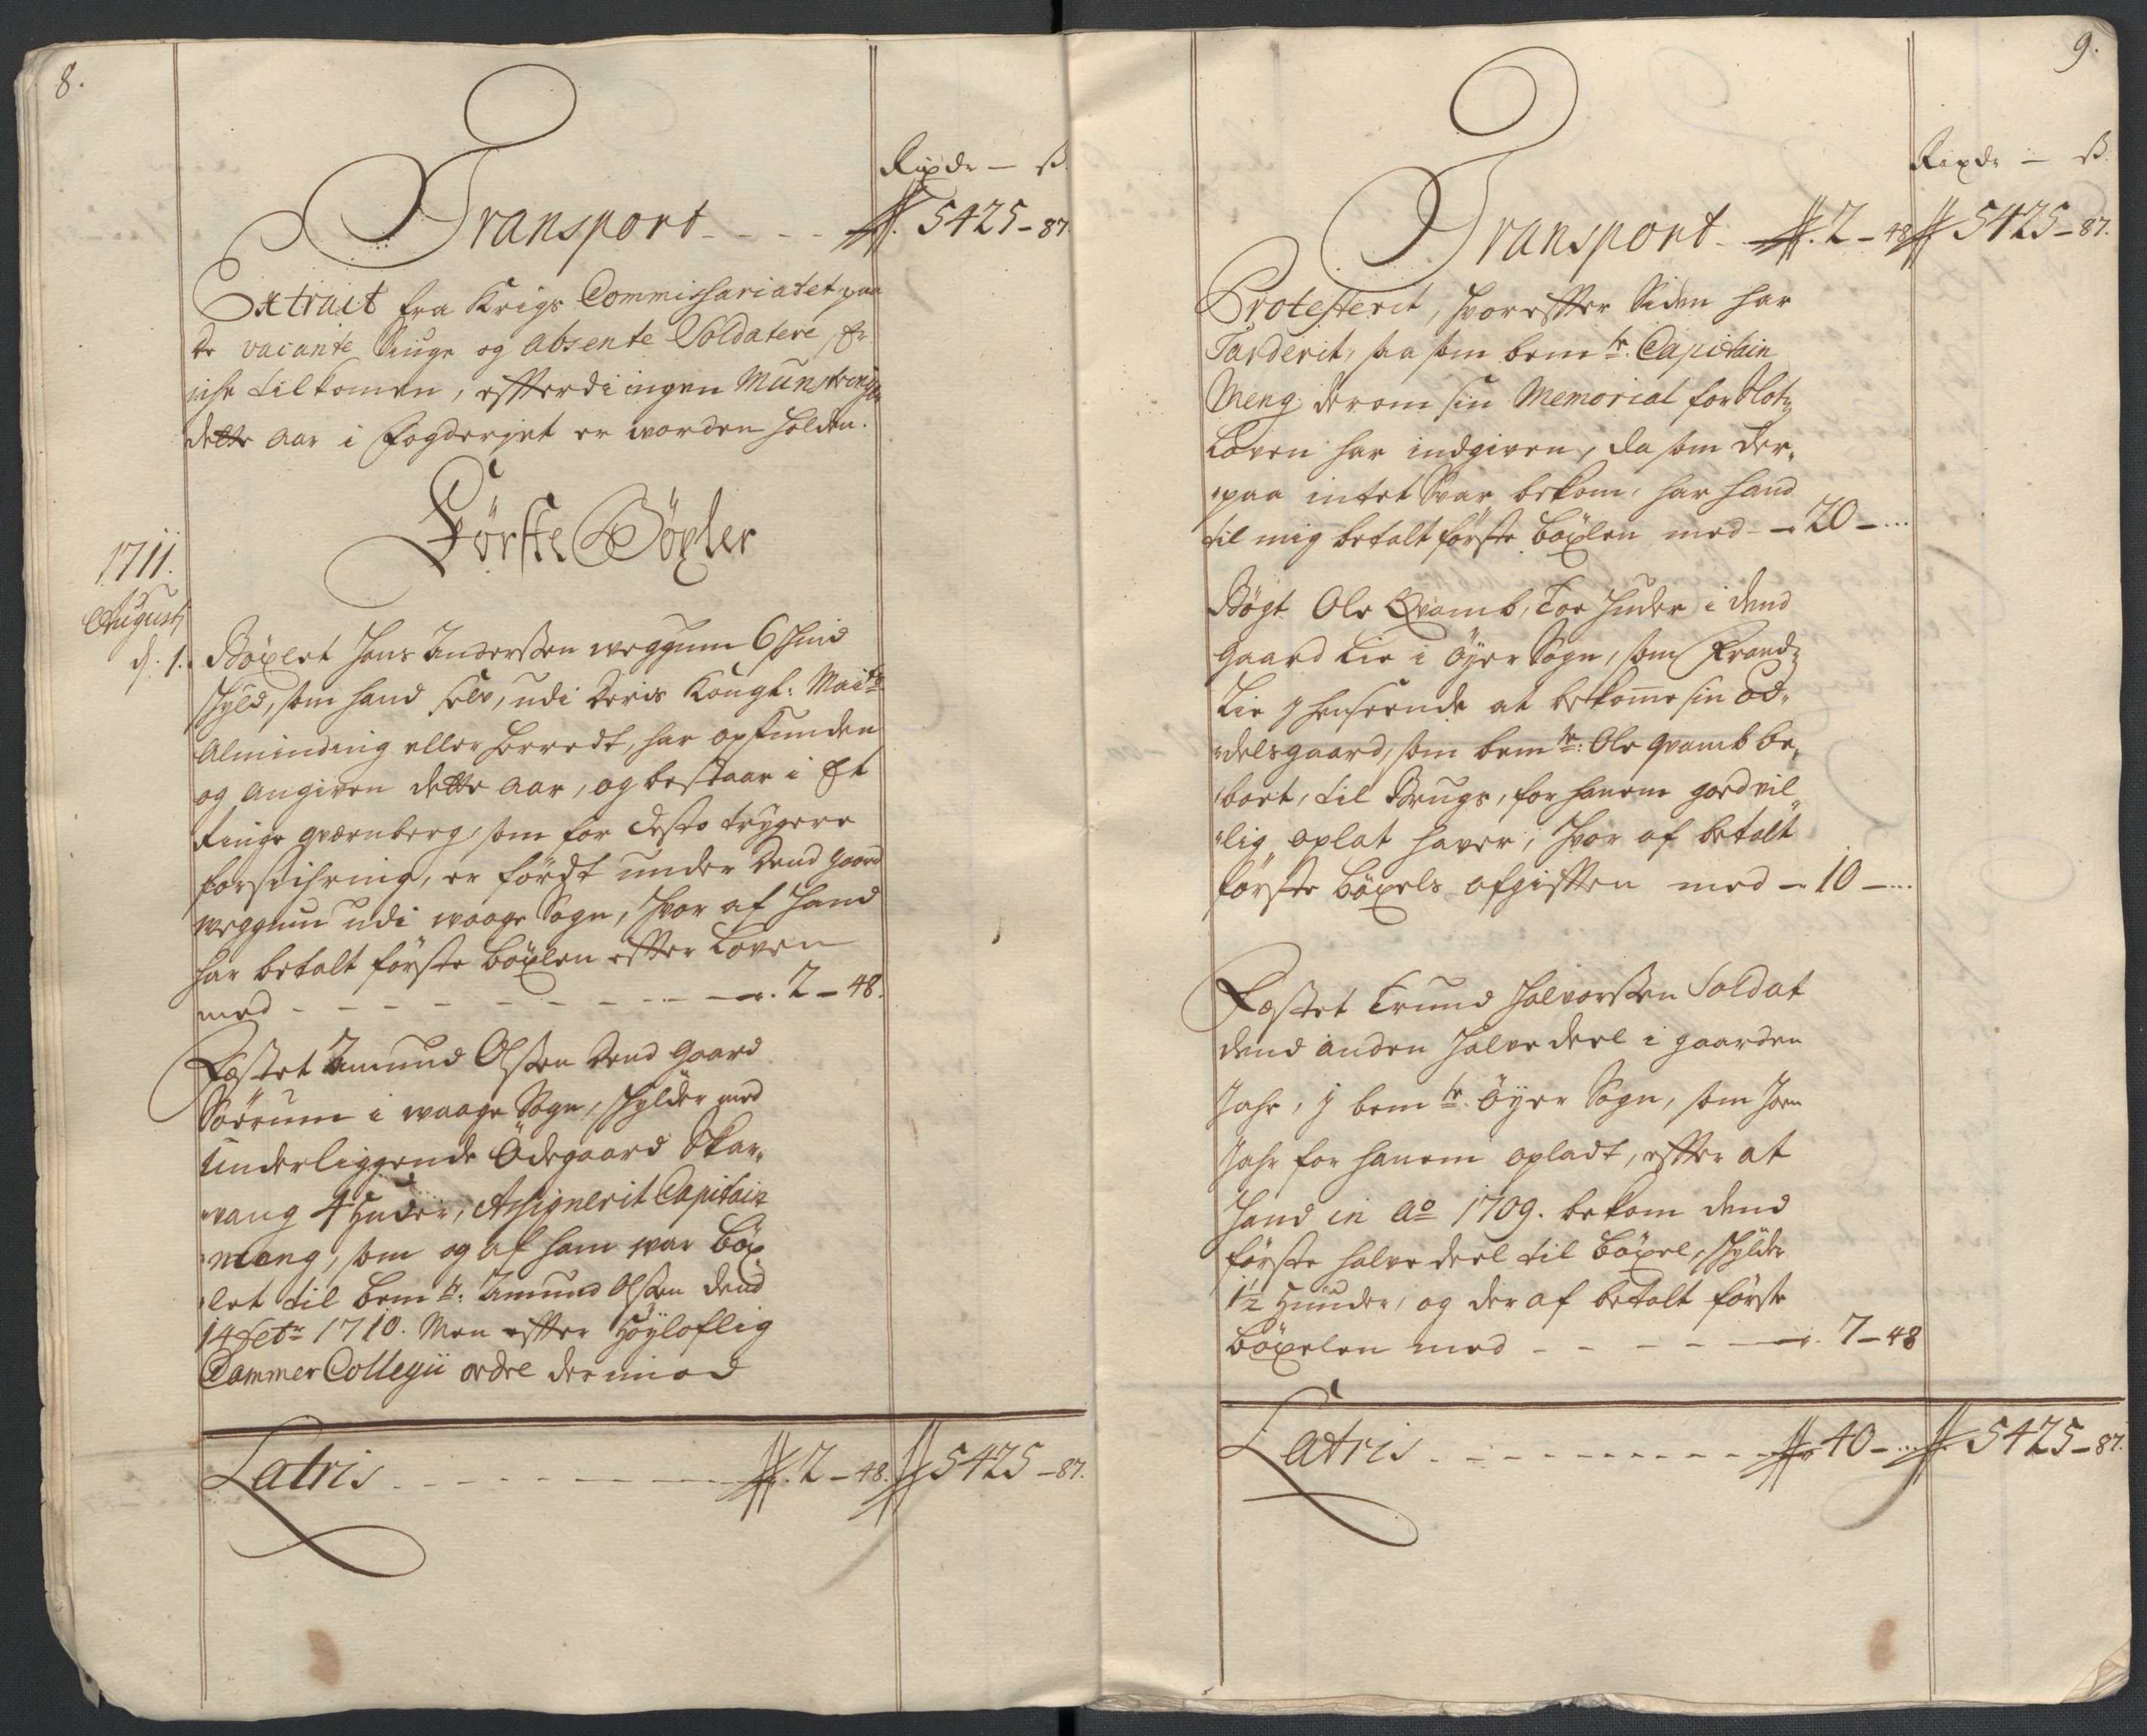 8.
Rixdr — ß.
Transport - - - - 5425 - 87.
Extract fra Krigs Commissariatet paa
de vacante Leuge og absente Soldatere, er
iche tilkomen, effterdi ingen Munstring
dette aar i fogderjet er worden holden.
Förste Böxler
1711.
Augustj
d. 1. Böxlet Hans Andersßen weggum 6 skind
skyld, som hand selv, udi Deris Kongl: Maits
Alminding eller herredt, har opfunden
og angiven dette aar, og bestaar i Et
ringe qværnberg, som for desto trygere
forsichring, er fördt under dend gaard
weggum udi waage Sogn, hvor af hand
har betalt förste böxlen effter Loven
med - - - - - - - - - 2 - 48.
Fæstet Amund Olßen dend gaard
Sörrum i waage Sogn, skylder med
underliggende Ödegaard Skar„
„vang 4 huder, Assignerit Capitain
meng, som og af ham war böx„
„let til bemte: Amund Olßen dend
14 Sebtr 1710. Men effter Höyloflig
Cammer Collegii ordre derimod
Latris - - - - - - - 2 - 48. 5425 - 87.
9.
Rixdr — ß.
Transport - 2 - 48 5425 - 87.
Protesterit, hvoreffter Siden har
Tarderit, saa som bemte. Capitain
Meng derom sin Memorial for Slotz
Loven har indgiven, da som der„
„paa intet Svar bekom, har hand
til mig betalt förste böxlen med - 20 - ...
Bögt Ole Qvamb, Toe huder i dend
gaard Lie i Öyer Sogn, som Frandz
Lie j henseende at bekome sin Od„
„delsgaard, som bemte: Ole qvamb be„
„boet, til Brugs, for hanem goedvil„
„lig oplat haver, hvor af betalt
förste böxels afgifften med - 10 - ...
Fæstet Trund Halvorsßen Soldat
dend anden halve deel i gaarden
Jahr, j bemte. Öyer Sogn, som Joen
Jahr for hanem opladt, effter at
hand in ao 1709. bekom dend
förste halve deel til böxel, skylder
1½ hunder, og der af betalt förste
böxelen med - - - - - 7 - 48
Latris - - - - - - - - - 40 - ... 5425 - 87.